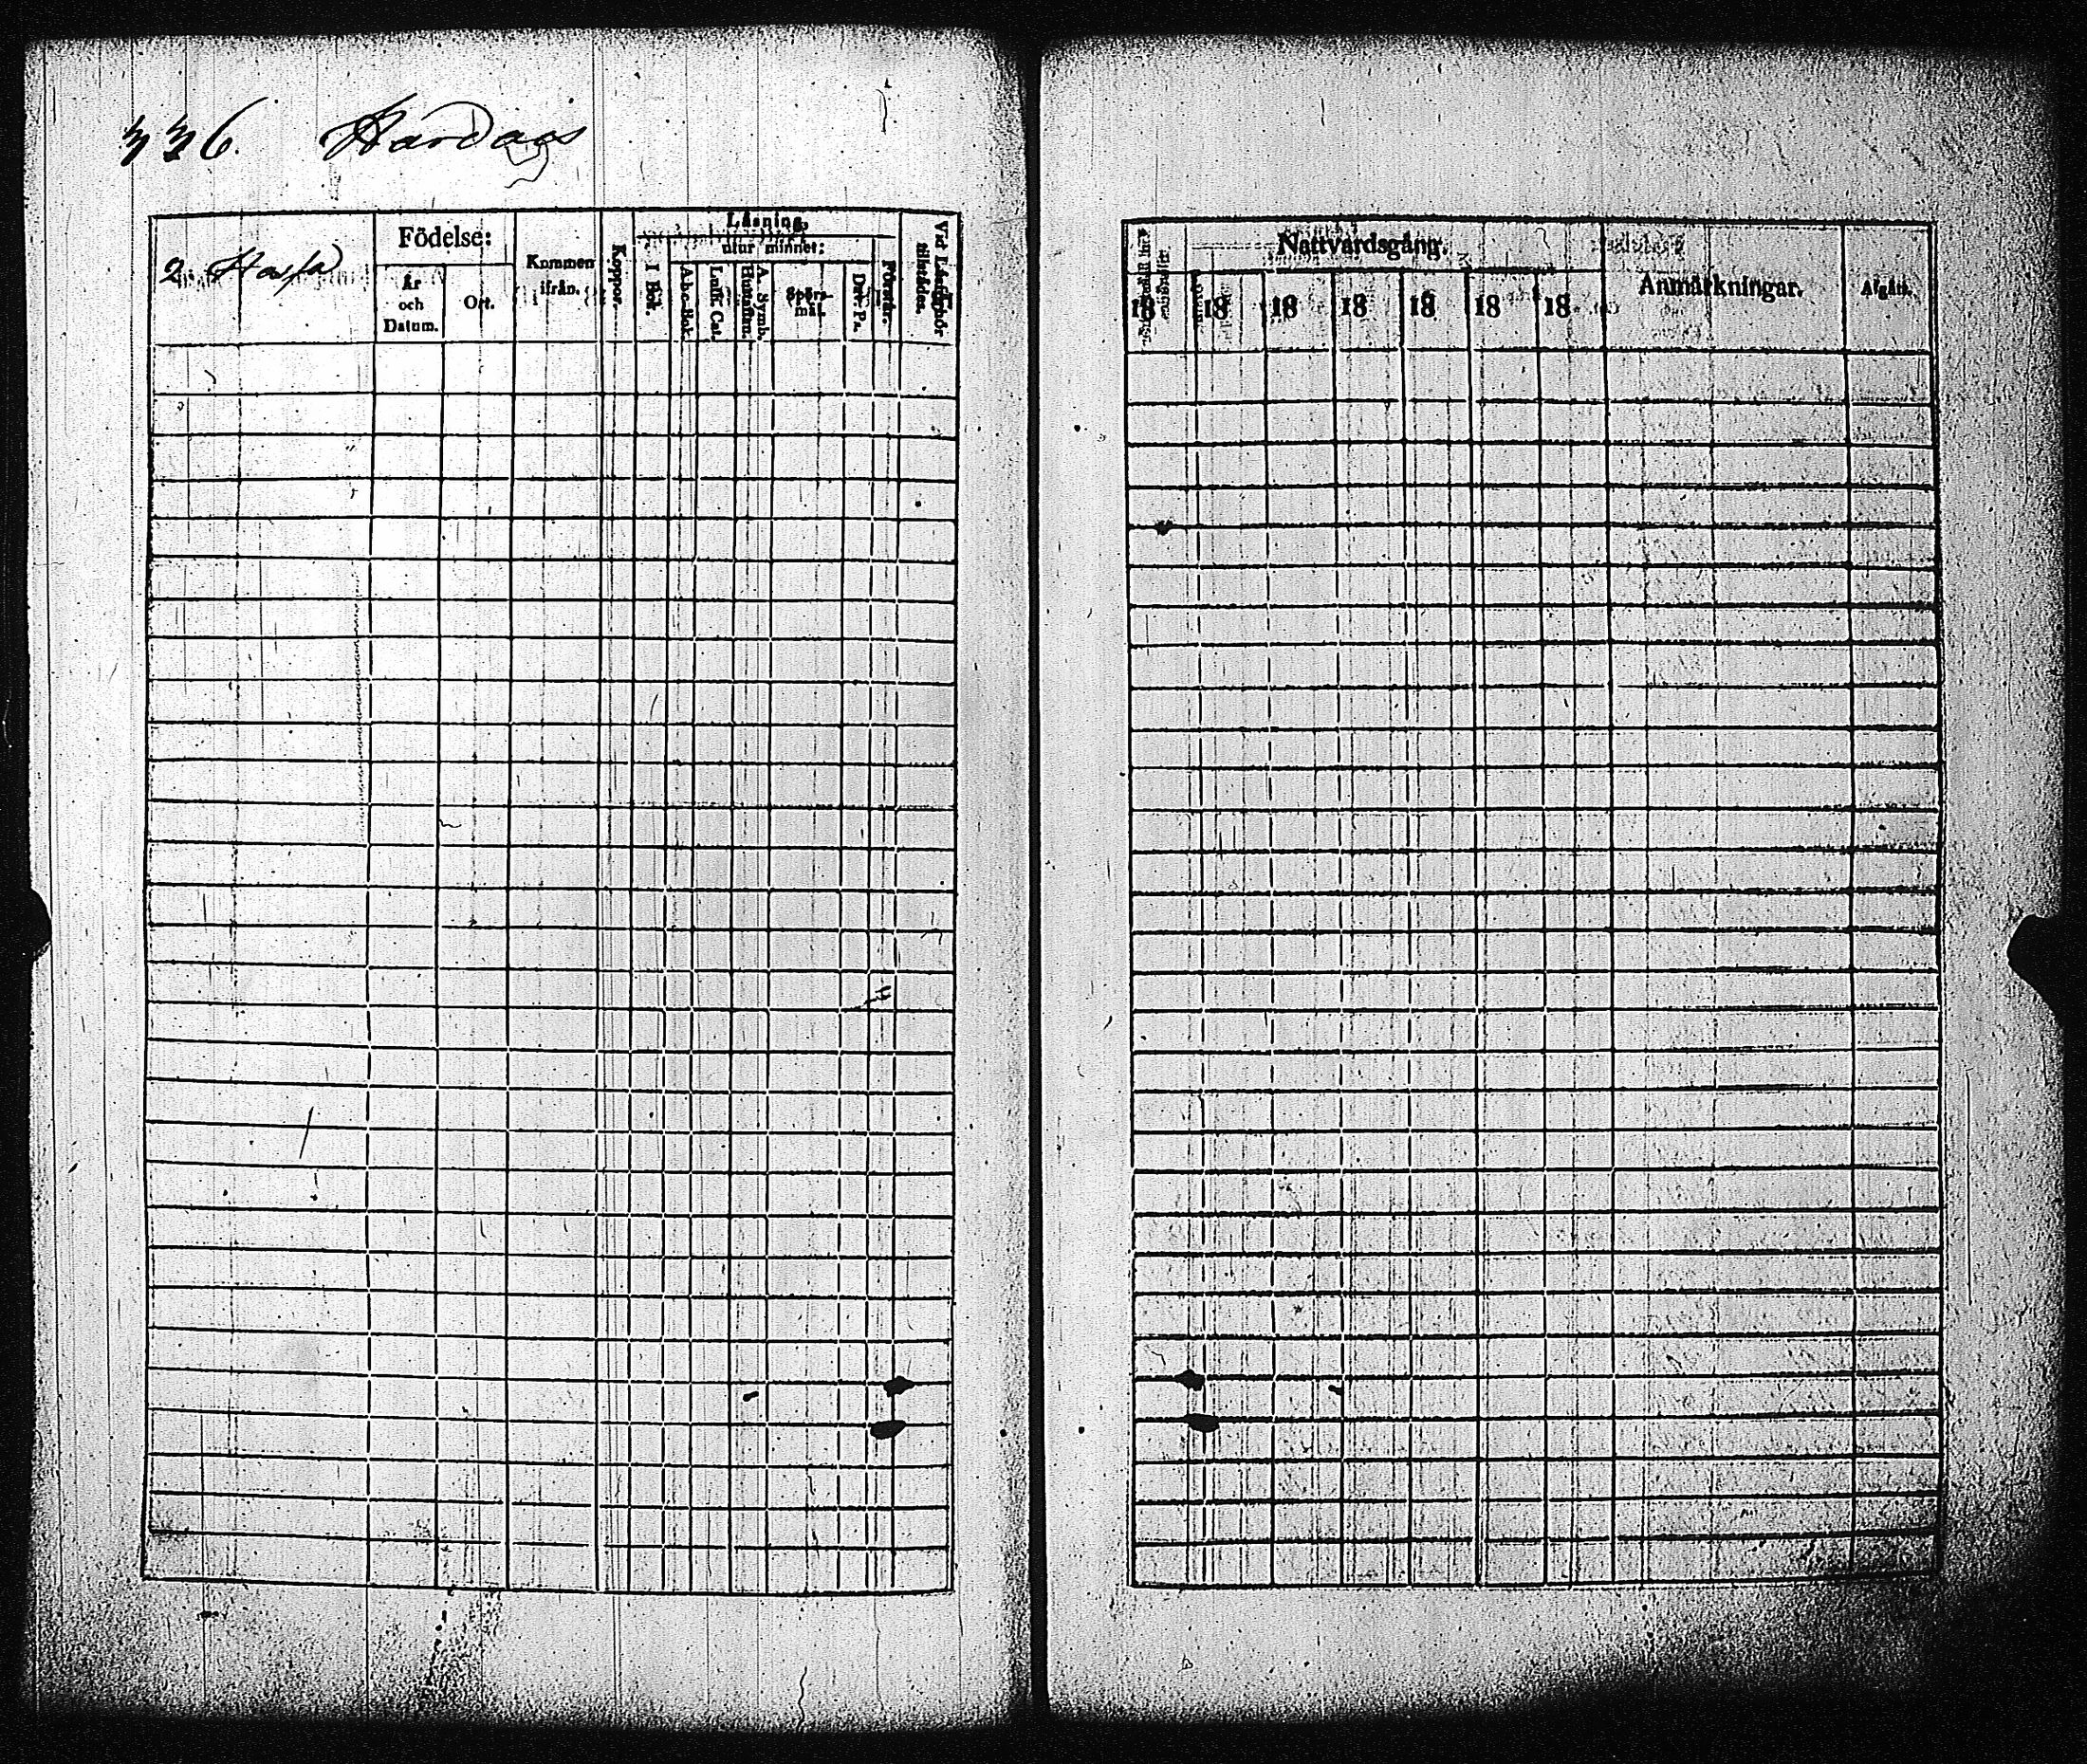 336. Hardags
2 Hassa
Födelse:
År och Datum.
Ort.
Kommen ifrån.
Koppor.
Läsning,
I Bok.
utur minnet:
A-b-c-Bok
Luth. Cat.
A. Symb. Hustaflan.
Spörsmål.
Dav. Ps.
Förstår.
Vid Läsförhör tillstädes.
Nattvardsgång.
18 18 18 18 18 18 18
Anmärkningar.
Afgått.